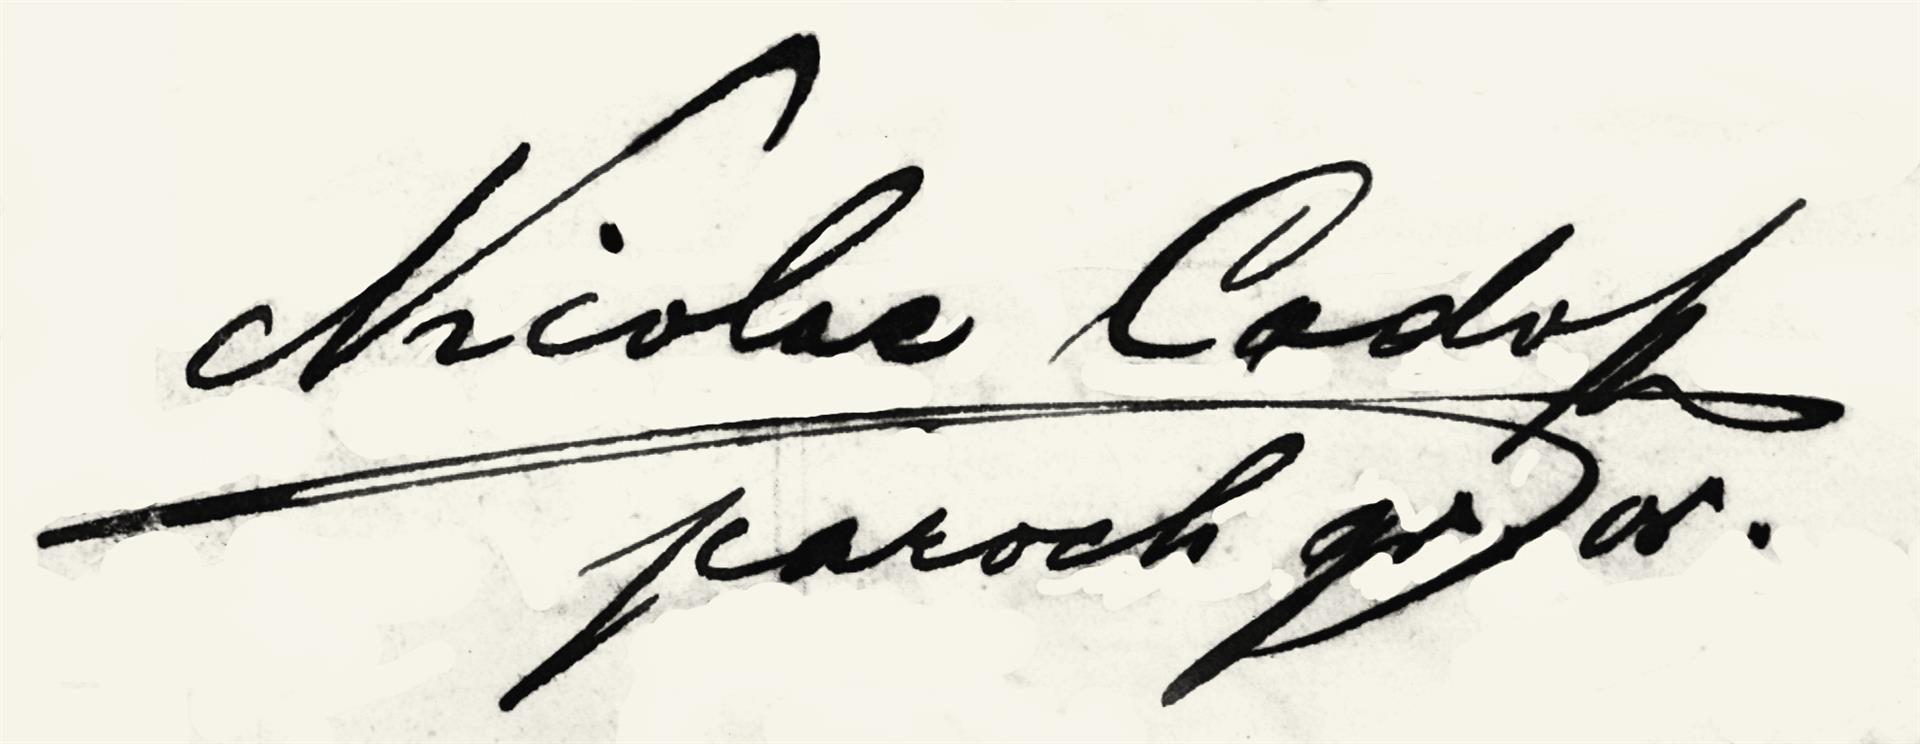 Nicolae Cadop
paroch gr. or.